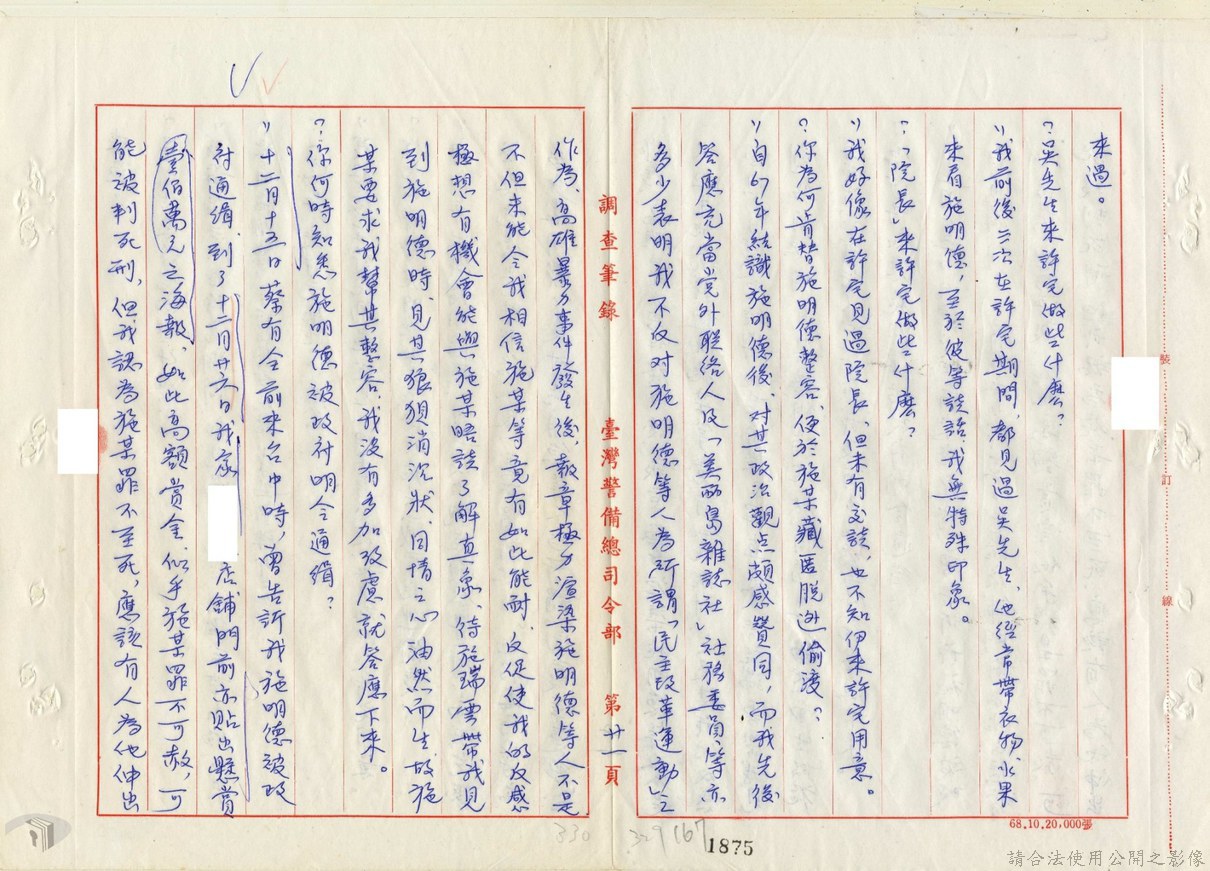 來過。
？吳先生來許宅做些什麼？
〃我前後三次在許宅期間，都見過吳先生，他經常帶衣物水果
來看施明德，至於彼等談話，我無特殊印象。
？「院長」來許宅做些什麼？
〃我好像在許宅見過院長，但未有交談，也不知伊來許宅用意。
？你為何肯替施明德整容，便於施某藏匿脫逃偷渡？
〃自67年結識施明德後，对其政治觀点頗感贊同，而我先後
答應充當党外联络人及「美丽島雜誌社」社務委員等，亦
多少表明我不反对施明德等人為所謂「民主改革運動」之
調查筆錄 臺灣警備總司令部 第廿一頁
作為，高雄暴力事件發生後，報章極力渲染施明德等人不是，
不但未能令我相信施某等竟有如此能耐，反促使我的反感
極想有機會能與施某晤談了解真象，待施瑞雲帶我見
到施明德時，見其狼狽消沉狀，同情之心油然而生，故施
某要求我幫其整容，我沒有多加攷慮就答應下來。
？你何時知悉施明德被政府明令通緝？
〃十二月十五日蔡有全前來台中時，曾告訴我施明德被政
府通緝，到了十二月廿六日我家店鋪門前亦貼出懸賞
壹佰萬元之海報，如此高額賞金，似乎施某罪不可赦，可
能被判死刑，但我認為施某罪不至死，應該有人為他伸出
裝 訂 線
68.10.20,000張
330
329
167
1875
請合法使用公開之影像